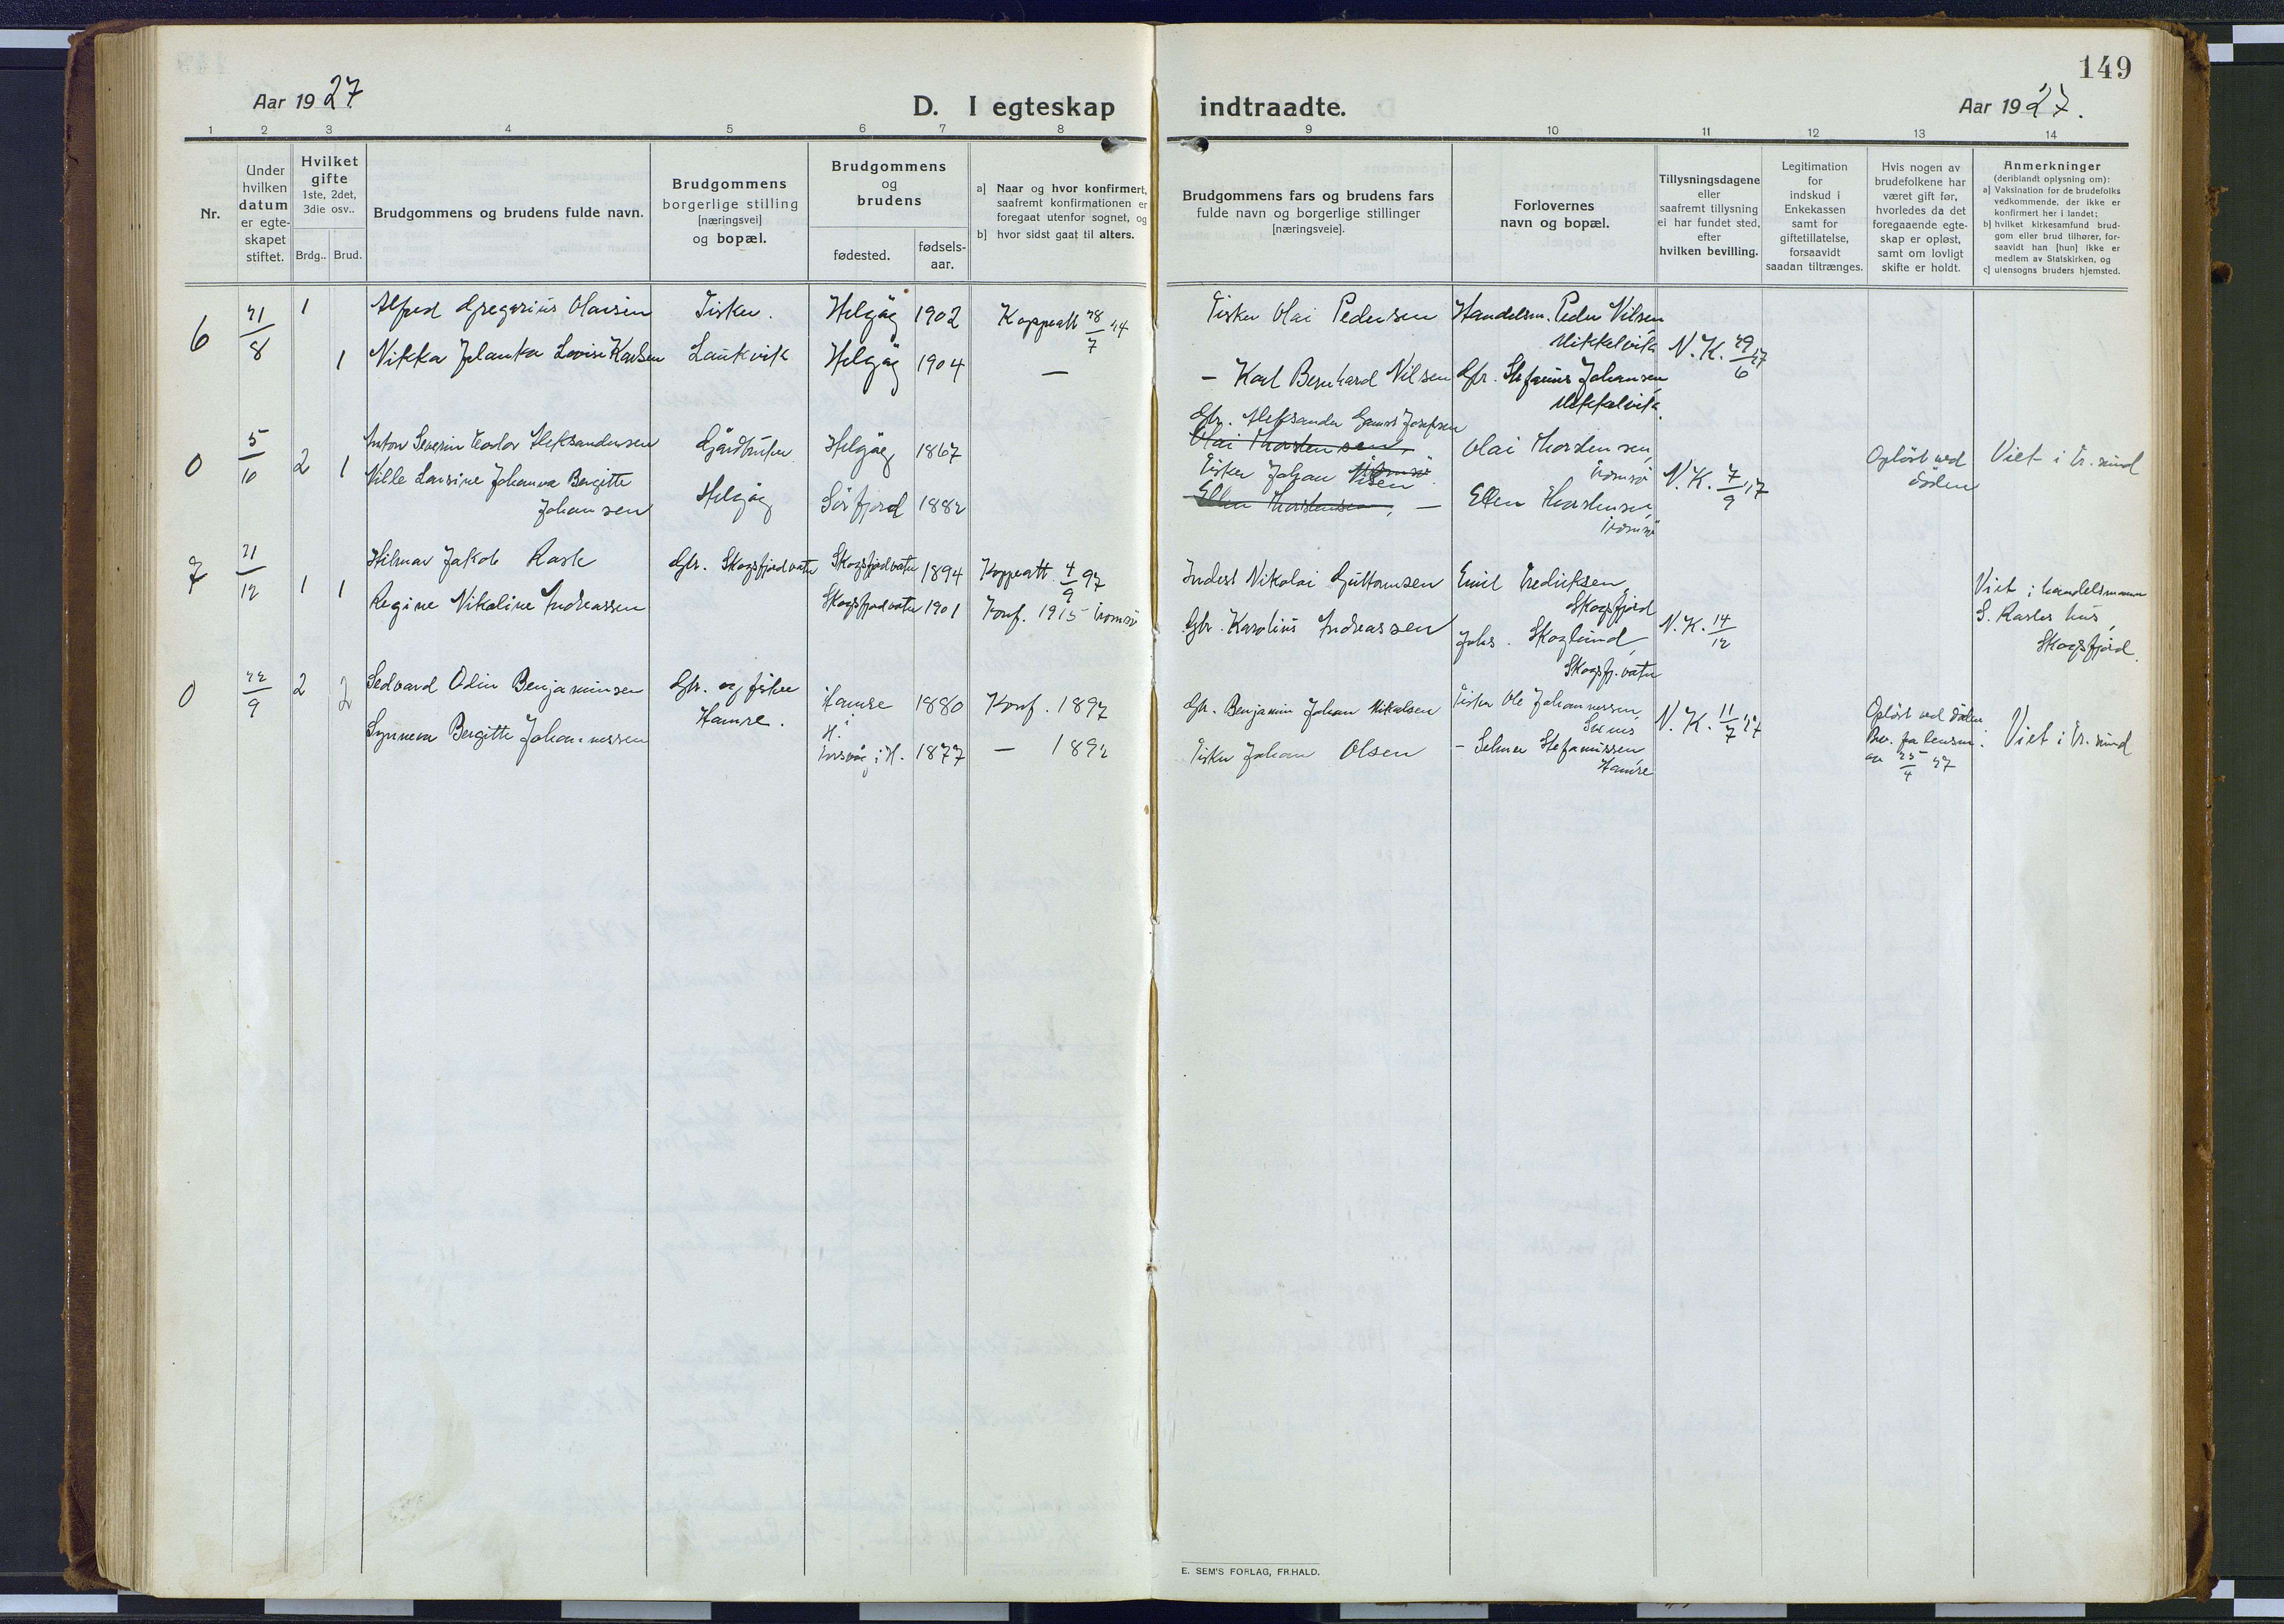 149
Aar 1927
D. I egteskap indtraadte.
Aar 1927.
1 2 3 4 5 6 7 8 9 10 11 12 13 14
Nr.
Under hvilken datum er egte-skapet stiftet.
Hvilket gifte 1ste, 2det, 3die osv..
Brdg.. Brud.
Brudgommens og brudens fulde navn.
Brudgommens borgerlige stilling [næringsvei] og bopæl.
Brudgommens og brudens
fødested.
fødsels-aar.
a] Naar og hvor konfirmert, saafremt konfirmationen er foregaat utenfor sognet, og
b] hvor sidst gaat til alters.
Brudgommens fars og brudens fars fulde navn og borgerlige stillinger [næringsveie].
Forlovernes navn og bopæl.
Tillysningsdagene eller saafremt tillysning ei har fundet sted, efter hvilken bevilling.
Legitimation for indskud i Enkekassen samt for giftetillatelse, forsaavidt saadan tiltrænges.
Hvis nogen av brudefolkene har været gift før, hvorledes da det foregaaende egte-skap er opløst, samt om lovligt skifte er holdt.
Anmerkninger
(deriblandt oplysning om):
a] Vaksination for de brudefolks vedkommende, der ikke er konfirmert her i landet;
b] hvilket kirkesamfund brud-gom eller brud tilhører, for-saavidt han [hun] ikke er medlem av Statskirken, og
c] utensogns bruders hjemsted.
6 21/8 1 Alfred Gregorius Olaisen Fisker. Helgøy 1902 Koppeatt 28/7 24 Fisker Olai Pedersen Handelsm. Peder Nilsen
Mikkelvik N.K. 29/6 27
1 Nikka Jolanta Lovise Karlsen Laukvik Helgøy 1904 — – Karl Bernhard Nilsen Gbr. Stefanus Johansen
Mikkelvik
0 5/10 2 1 Anton Severin Teodor Aleksandersen Gårdbruker Helgøy 1867 Gbr. Aleksander Josefsen
Olai Thorstensen, Olai Thorstensen, Tromsø Opløst ved døden Viet i Tr. sund
Nille Lavsine Johanna Bergitte Johansen Helgøy Sørfjord 1882 Fisker Johan Nilsen
Ellen Thorstensen, — Ellen Thorstensen, Tromsø N.K. 7/9 27
7 21/12 1 1 Hilmar Jakob Rask Gbr. Skogsfjordvatn Skogsfjordvatn 1894 Koppeatt. 4/9 97 Inderst Nikolai Guttormsen Emil Fredriksen, Skogsfjord
Regine Nikoline Andreassen Skogsfjordvatn 1901 Konf. 1915 Tromsø Gbr. Karolius Andreassen Johs. Skoglund, Skogsfj. vatn N.K. 14/12
Viet i handelsmann S. Rasks hus, Skogsfjord.
0 22/9 2 2 Sedvard Odin Benjaminsen Gbr. og fisker Hamre. Hamre i H. 1880 Konf. 1897 Gbr. Benjamin Johan Mikalsen Fisker Ole Johannessen, N.K. 11/7 27
Synneva Bergitte Johannessen Torsvåg i H. 1877 — 1892 Fisker Johan Olsen – Selmer Stefanussen Hamre
Opløst ved døden Bev. fra lensm. av 25/4 27 Viet i Tr. sund
E. SEM'S FORLAG, FR.HALD.